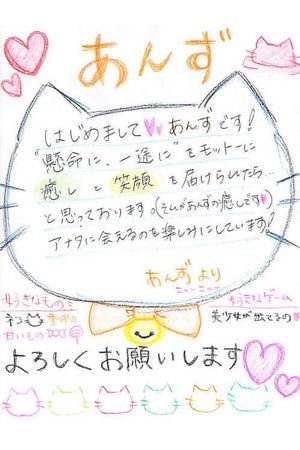 あんず
はじめまして あんずです!
"懸命に、一途に"をモットーに
癒しと笑顔を届けられたら…
と思っております。(それがあんずの癒しです)
アナタに会えるのを楽しみにしています!
あんずより
好きなもの
ネコ
甘いもの
好きなゲーム
美少女が出てるの
よろしくお願いします